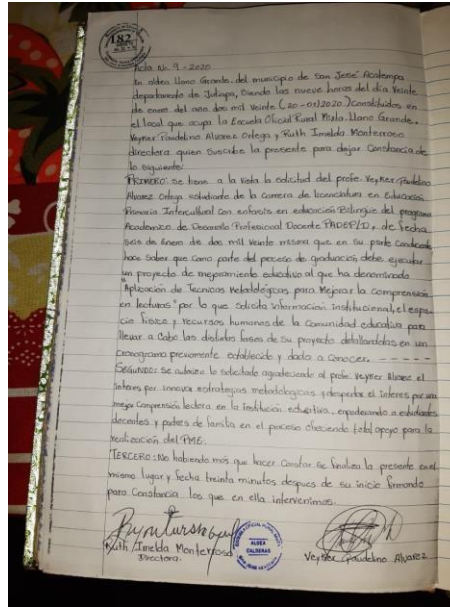 182
Acta No. 9 - 2020
En aldea Llano Grande, del municipio de San José Acatempa
departamento de Jutiapa, Siendo las nueve horas del día Veinte
de enero del año dos mil Veinte (20-01-2020) Constituidos en
el local que ocupa la Escuela Oficial Rural Mixta Llano Grande.
Veyker Gaudelino Alvarez Ortega y Ruth Imelda Monterroso
directora quien suscribe la presente para dejar Constancia de
lo siguiente:
PRIMERO: se tiene a la vista la solicitud del profe. Veyker Gaudelino
Alvarez Ortega estudiante de la carrera de licenciatura en Educación
Primaria Intercultural con enfasis en educación Bilingüe del programa
Academico de Desarrollo Profesional Docente PADEP/D, de fecha
seis de Enero de dos mil Veinte misma que en su parte conducente
hace saber que como parte del proceso de graduación debe ejecutar
un proyecto de mejoramiento educativo al que ha denominado
"Aplicación de Tecnicas Metodológicas para Mejorar la comprensión
en lecturas" por lo que solicita información institucional, el espa-
cio fisico y recursos humanos de la comunidad educativa para
llevar a Cabo las distintas fases de su proyecto detallandolas en un
Cronograma previamente establecido y dado a conocer. - - - - -
SEGUNDO: se autoriza lo solicitado agradeciendo al profe. Veyker Alvarez el
interes por innovar estrategias metodologicas y despertar el interes por una
mejor Comprensión lectora en la institución educativa, empoderando a estudiantes
docentes y padres de familia en el proceso ofreciendo total apoyo para la
realización del PME.
TERCERO: No habiendo más que hacer Constar se finaliza la presente en el
mismo lugar y fecha treinta minutos despues de su inicio firmando
para Constancia los que en ella intervenimos.
Ruth Imelda Monterroso
Directora.
ALDEA
CALDERAS
Veyker Gaudelino Alvarez